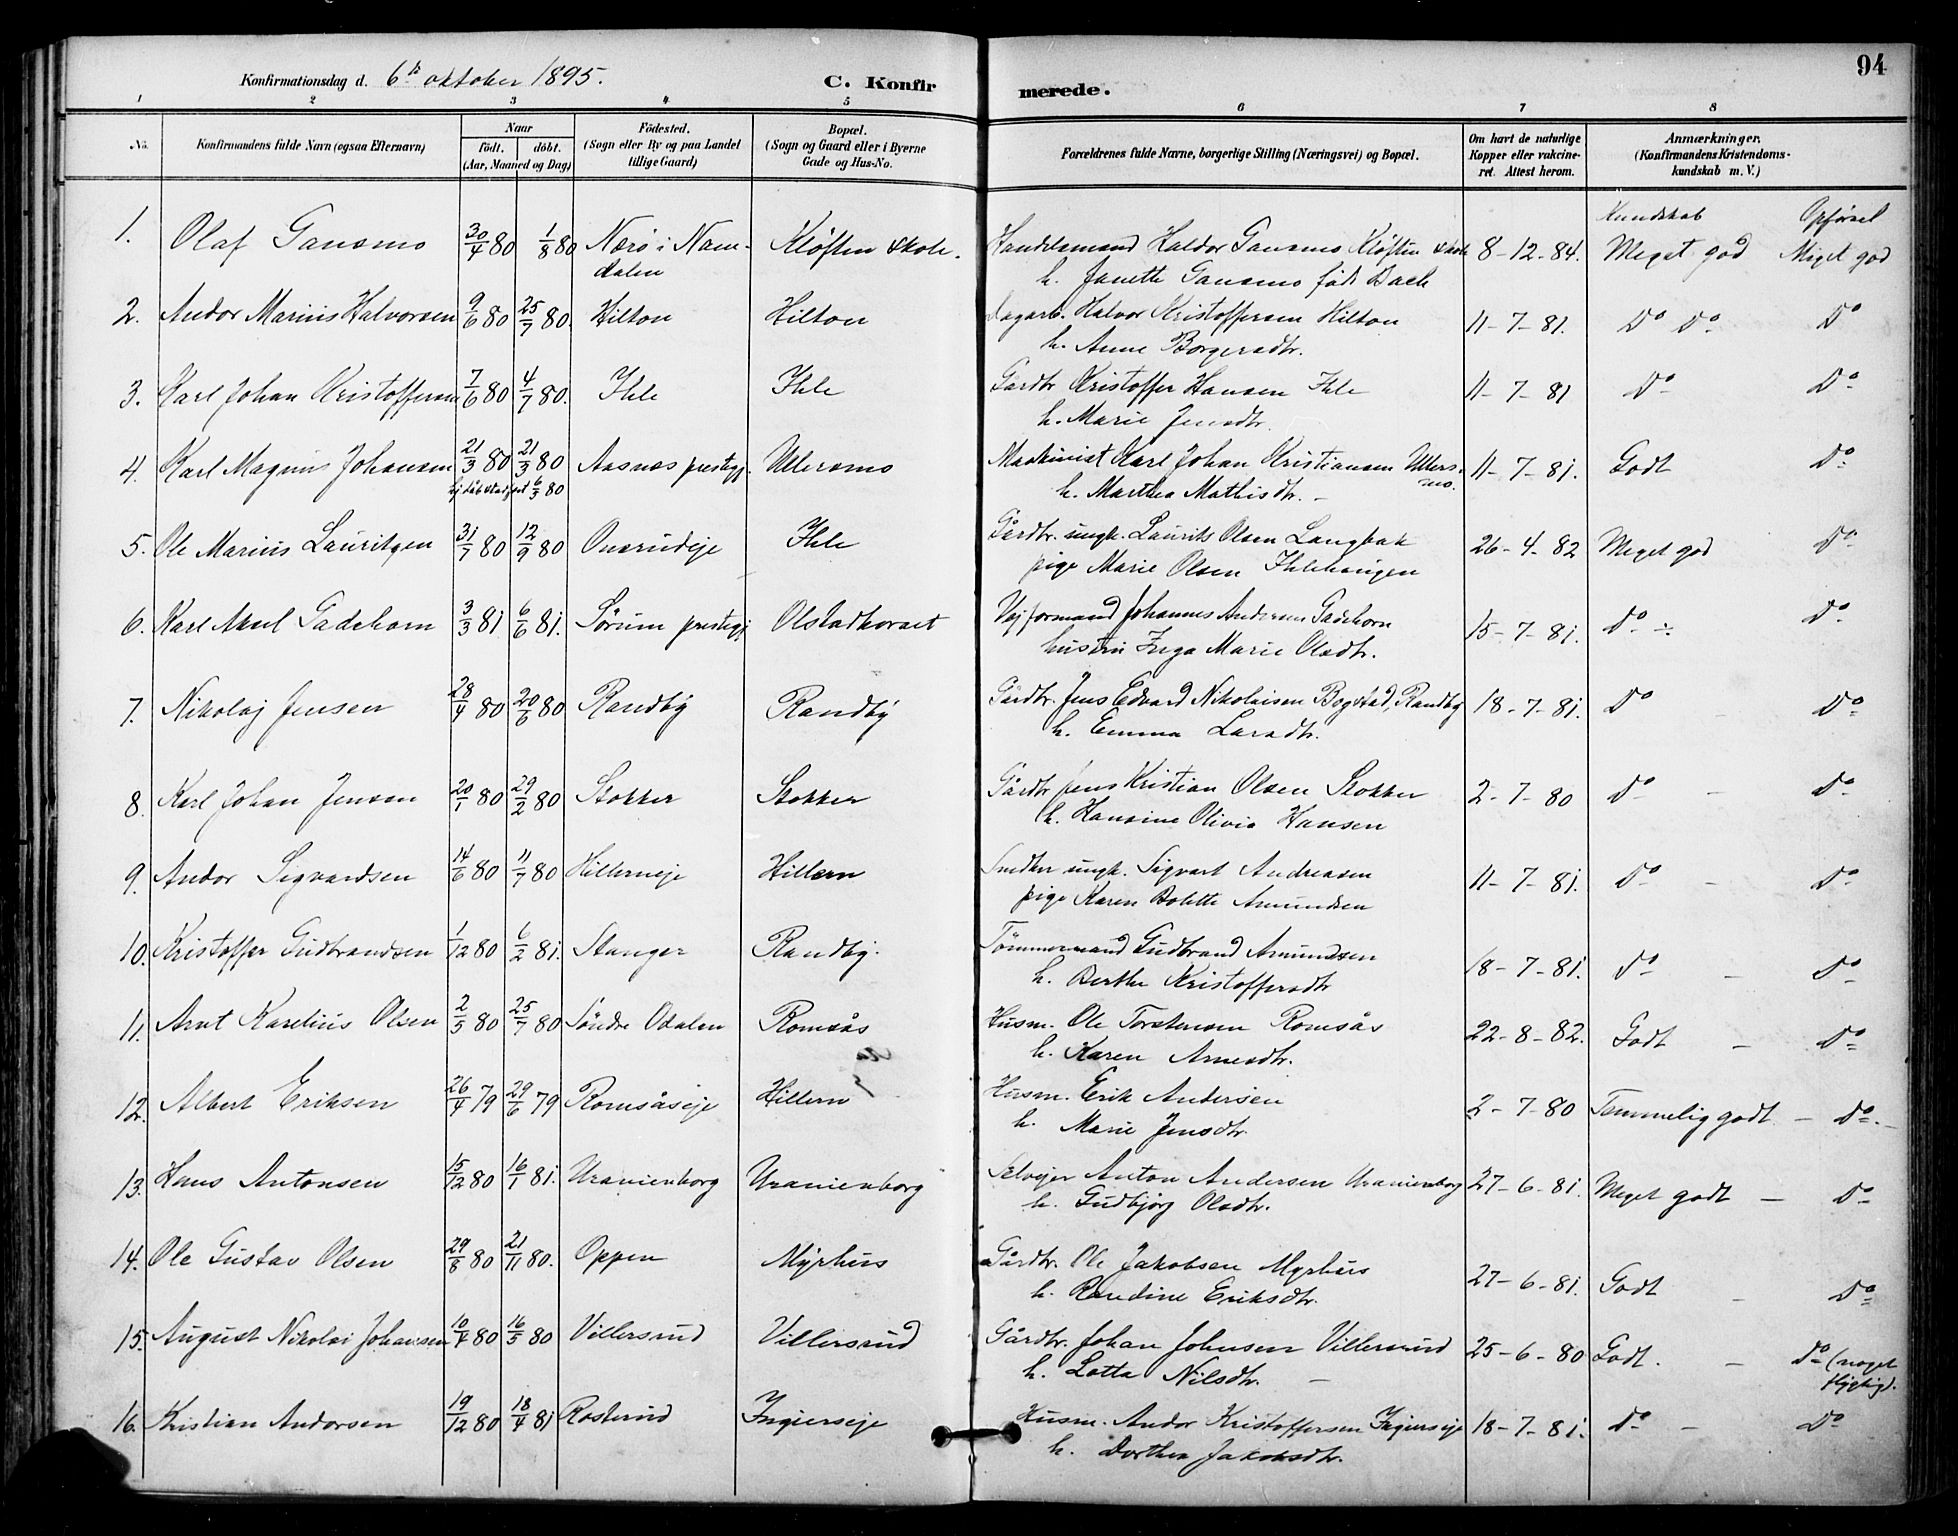 94
Konfirmationsdag d. 6te oktober 1895.
C. Konfir merede.
1 2 3 4 5 6 7 8
No. Konfirmandens fulde Navn (ogsaa Efternavn) Naar födt. döbt. (Aar, Maaned og Dag) Födested. (Sogn eller By og paa Landet tillige Gaard) Bopæl. (Sogn og Gaard eller i Byerne Gade og Hus-No. Forældrenes fulde Navne, borgerlige Stilling (Næringsvei) og Bopæl. Om havt de naturlige Kopper eller vakcineret. Attest herom. Anmærkninger. (Konfirmandens Kristendomskundskab m. V.)
Kundskab Opførsel
1. Olaf Gansmo 30/4 80 1/8 80 Nærø i Nam- Kløften skole. Handelsmand Haldor Gansmo Kløften skole 8-12-84. Meget god Meget god
dalen h. Janette Gansmo født Bach
2. Andor Marius Halvorsen 9/6 80 25/7 80. Hilton Hilton Dagarb. Halvor Kristoffersen Hilton 11-7-81. Do Do Do
h. Anne Borgersdtr.
3. Karl Johan Kristoffersen 7/6 80 4/7 80. Ihle Ihle Gårdbr Kristoffer Hansen Ihle 11-7-81 Do Do
h. Marie Jensdtr.
4. Karl Magnus Johansen 21/3 80 21/3 80 Aasnæs prestegj. Ullersmo Maskinist Karl Johan Kristiansen Ullers- 11-7-81. Godt Do
mo.
h. Marthea Mathisdtr.
5. Ole Marius Lauritzen 31/7 80 12/9 80 Onsrudeje Ihle Gårdbr. ungk. Laurits Olsen Langbak 26-4-82 Meget god Do
pige Marie Olsen Ihlehaugen
6. Karl Aksel Gadehorn 3/3 81 6/6 81. Sørum prestegj Olstadkorset Vejformand Johannes Andersen Gadehorn 15-7-81. Do Do
hustru Inga Marie Olsdtr.
7. Nikolaj Jensen 28/4 80 20/6 80 Randby Randby Gårdbr. Jens Edvard Nikolaisen Bogstad, Randby 18-7-81. Do Do
h. Emma Larsdtr.
8. Karl Johan Jensen 20/1 80 29/2 80 Stokker Stokker Gårdbr Jens Kristian Olsen Stokker 2-7-80 Do - Do
h. Hansine Olivia Hansen
9. Andor Sigvardsen 14/6 80 11/7 80 Hillerneje Hillern Snedker ungk. Sigvart Andreasen 11-7-81. Do - Do
pige Karen Bolette Amundsen
10. Kristoffer Gudbrandsen 1/12 80 6/2 81. Stanger Randby. Tömmermand Gudbrand Amundsen 18-7-81. Do - Do
h. Berthe Kristoffersdtr
11. Arnt Karelius Olsen 2/5 80 25/7 80 Söndre Odalen Romsås Husm. Ole Torstensen Romsås 22-8-82. Godt - Do
h. Karen Arnesdtr.
12. Albert Eriksen 26/4 79 29/6 79 Romsåseje Hillern Husm. Erik Andersen 2-7-80 Temmelig godt - Do
h. Marie Jensdtr.
13. Hans Antonsen 15/12 80 16/1 81. Uranienborg Uranienborg Selvejer Anton Andersen Uranienborg 27-6-81. Meget godt - Do
h. Gudbjörg Olsdtr.
14. Ole Gustav Olsen 29/8 80 21/11 80. Oppen Myrhus Gårdbr. Ole Jakobsen Myrhus 27-6-81. Godt - Do
h. Randine Eriksdtr.
15. August Nikolai Johansen 10/4 80 16/5 80 Villersrud Villersrud Gårdbr. Johan Johnsen Villersrud 25-6-80 Godt. - Do (noget
flygtig).
h. Lotta Nilsdtr.
16. Kristian Andorsen 19/12 80 18/4 81 Rosterud Ingierseje Husm. Andor Kristoffersen Ingierseje 18-7-81. Do - Do
h. Dorthea Jakobsdtr.